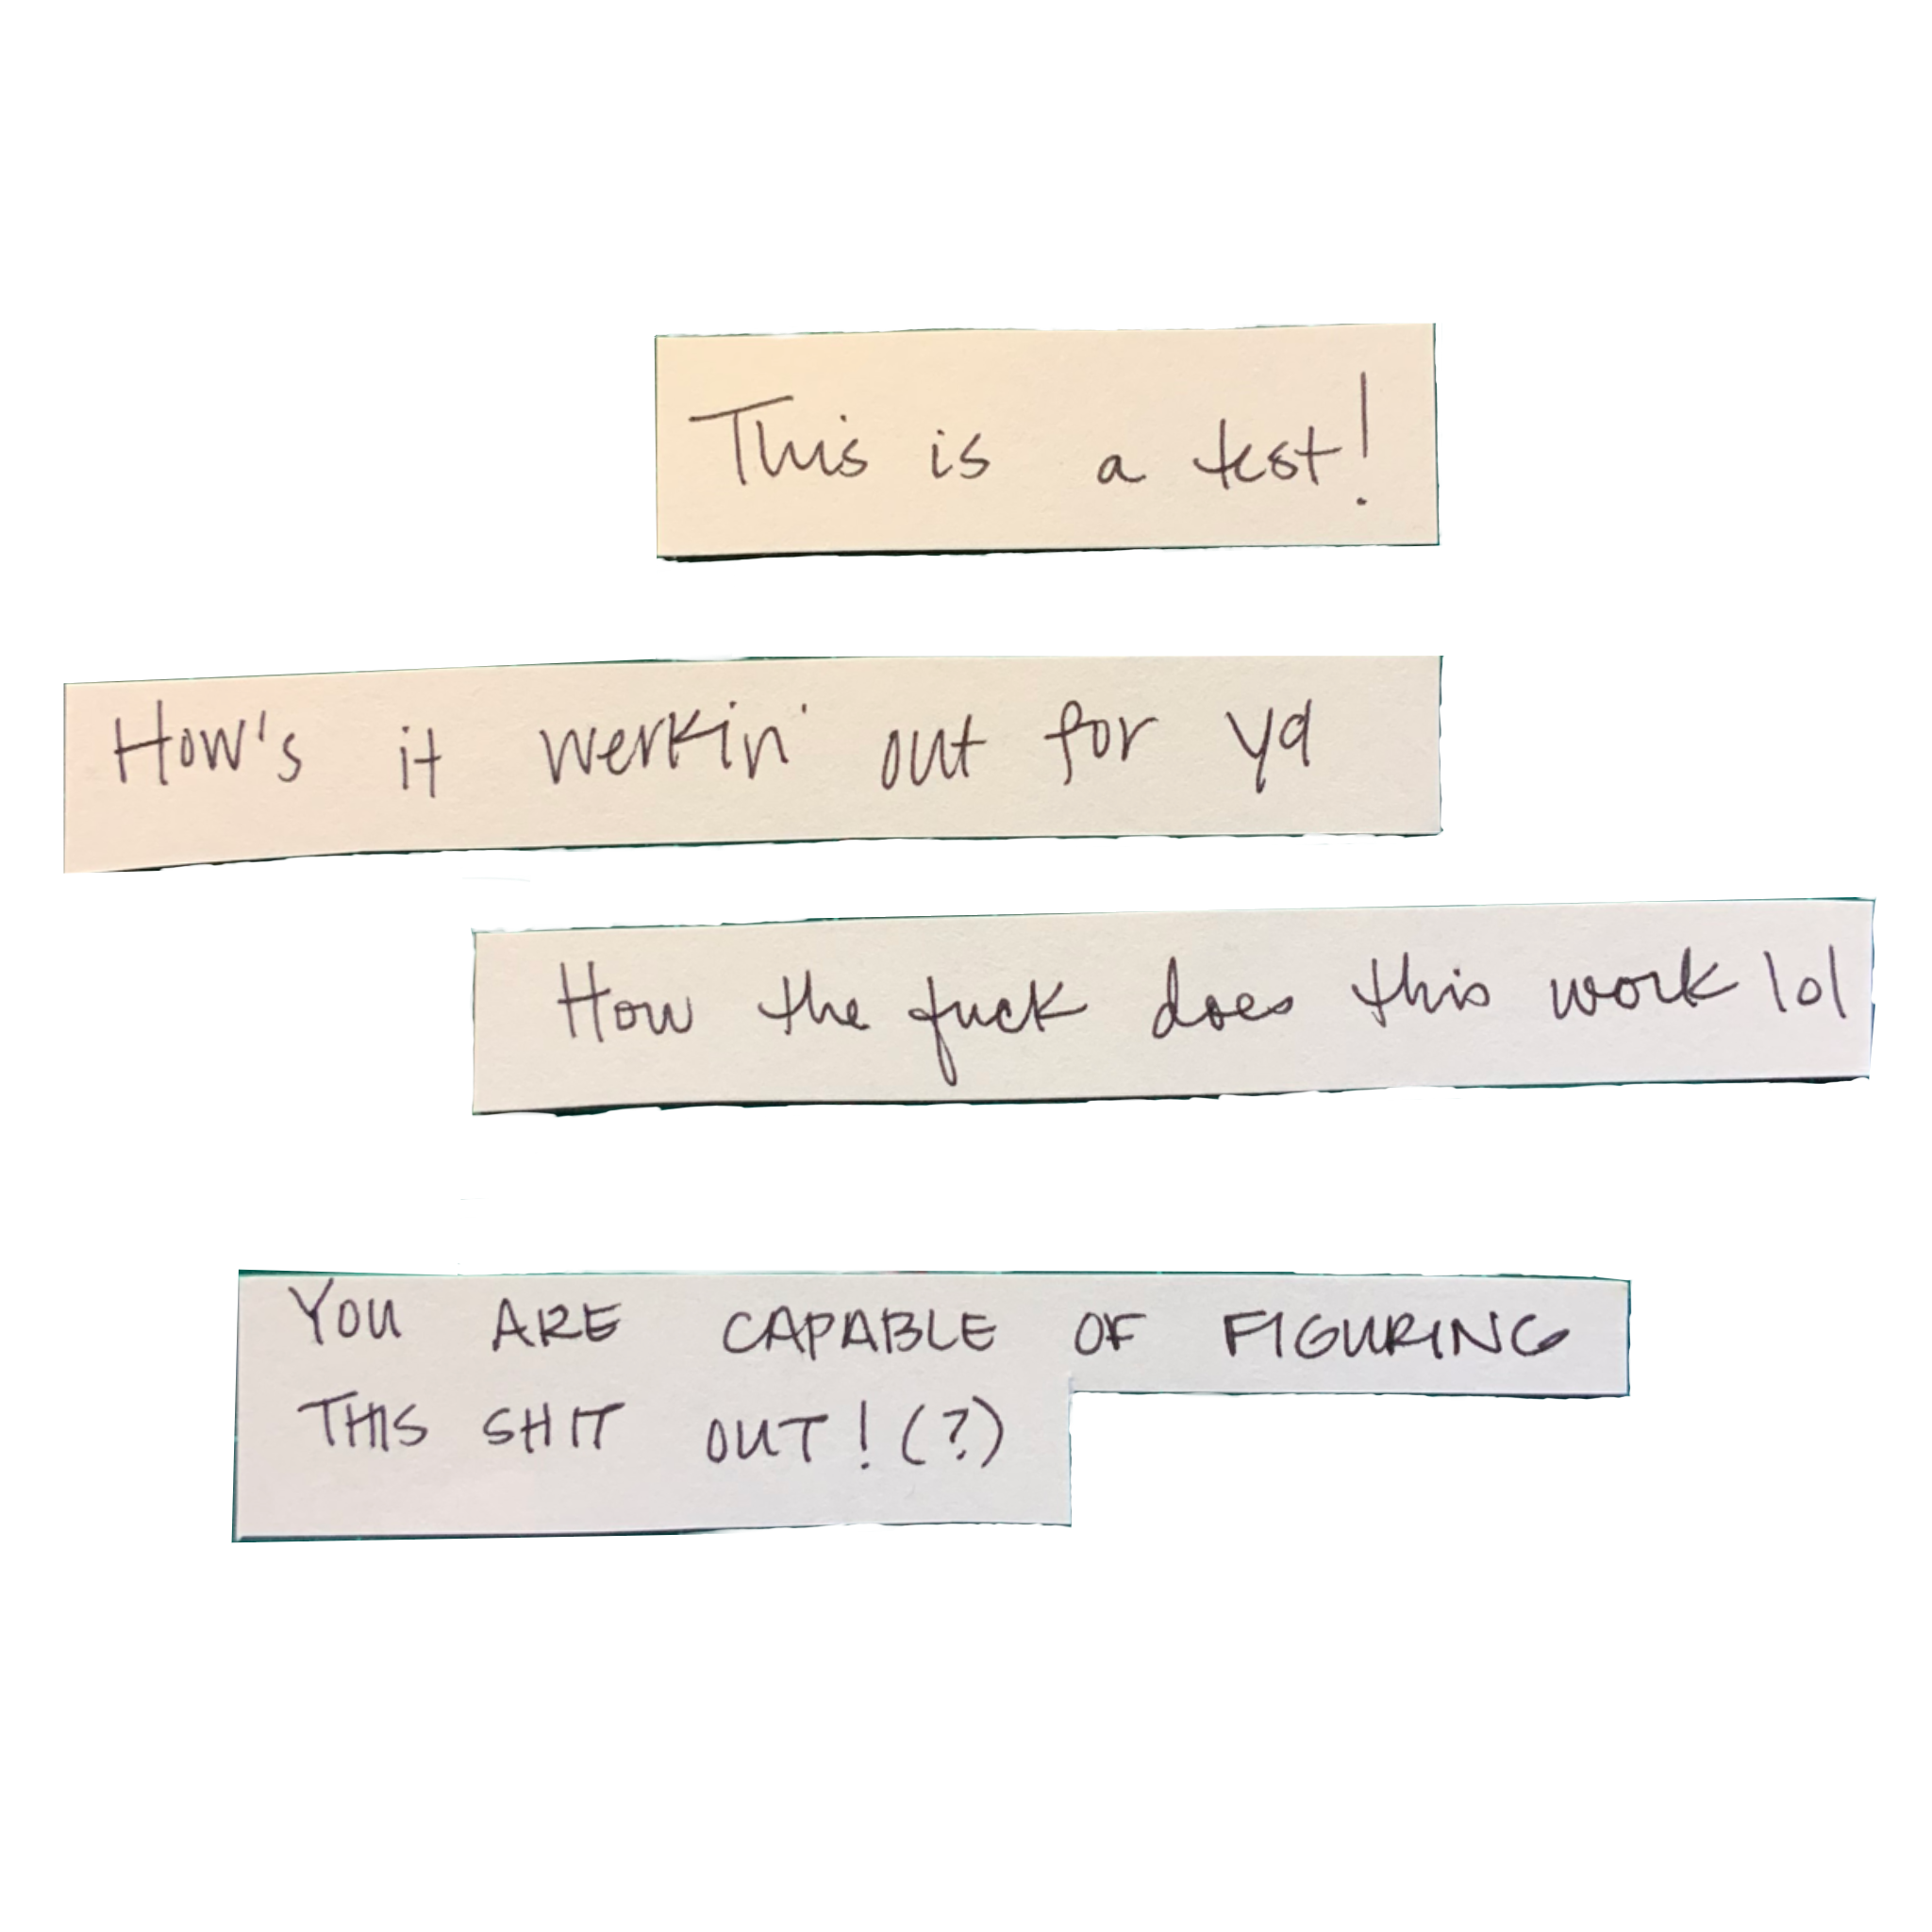 This is a test!
How's it werkin' out for ya
How the fuck does this work lol
YOU ARE CAPABLE OF FIGURING
THIS SHIT OUT! (?)